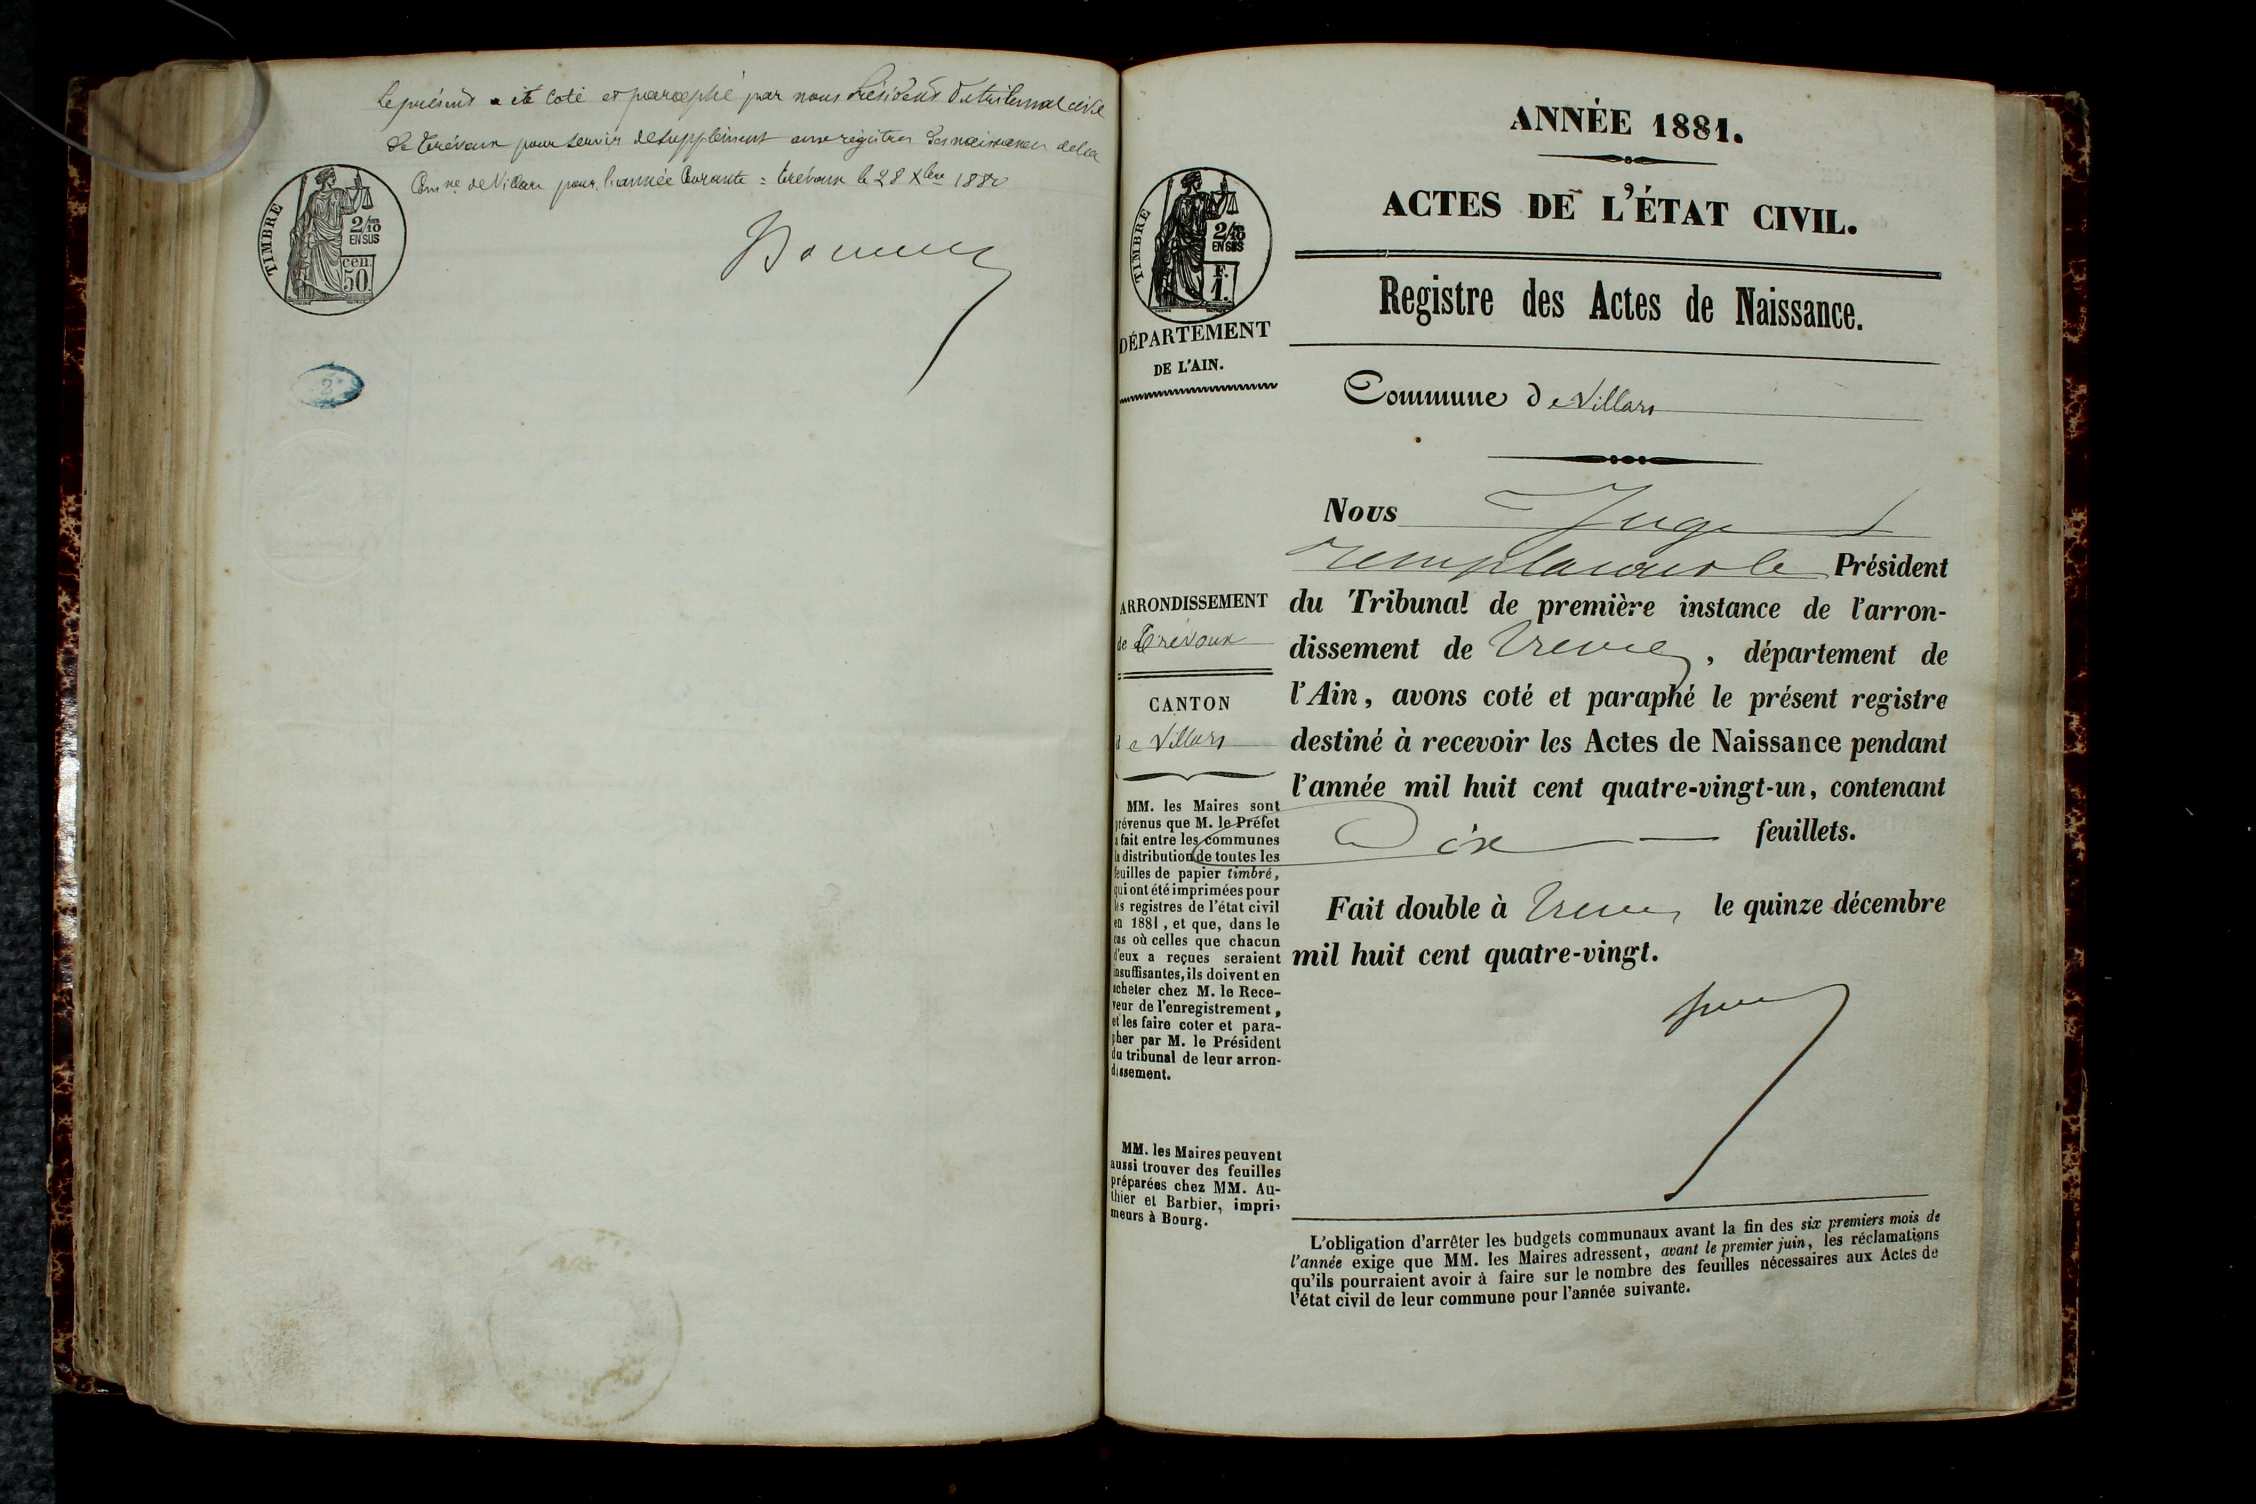 Le présent a été coté et paraphé par nous Président du tribunal civil
de Trévoux pour servir de supplément aux registres des naissances de la
Comne de Villars pour l'année courante = Trévoux le 28 Xbre 1880
TIMBRE
2/10
EN SUS
cen.
50
2
ANNÉE 1881.
ACTES DE L'ÉTAT CIVIL.
Registre des Actes de Naissance.
TIMBRE
2/10
EN SUS
F.
1.
DÉPARTEMENT
DE L'AIN.
Commune de Villars
ARRONDISSEMENT
de Trévoux
CANTON
de Villars
MM. les Maires sont
prévenus que M. le Préfet
a fait entre les communes
la distribution de toutes les
feuilles de papier timbré,
qui ont été imprimées pour
les registres de l'état civil
en 1881, et que, dans le
cas où celles que chacun
d'eux a reçues seraient
insuffisantes, ils doivent en
acheter chez M. le Rece-
veur de l'enregistrement,
et les faire coter et para-
pher par M. le Président
du tribunal de leur arron-
dissement.
MM. les Maires peuvent
aussi trouver des feuilles
préparées chez MM. Au-
thier et Barbier, impri-
meurs à Bourg.
Nous Juge
remplaçant le Président
du Tribunal de première instance de l'arron-
dissement de Trévoux, département de
l'Ain, avons coté et paraphé le présent registre
destiné à recevoir les Actes de Naissance pendant
l'année mil huit cent quatre-vingt-un, contenant
Dix feuillets.
Fait double à Trévoux le quinze décembre
mil huit cent quatre-vingt.
L'obligation d'arrêter les budgets communaux avant la fin des six premiers mois de
l'année exige que MM. les Maires adressent, avant le premier juin, les réclamations
qu'ils pourraient avoir à faire sur le nombre des feuilles nécessaires aux Actes de
l'état civil de leur commune pour l'année suivante.